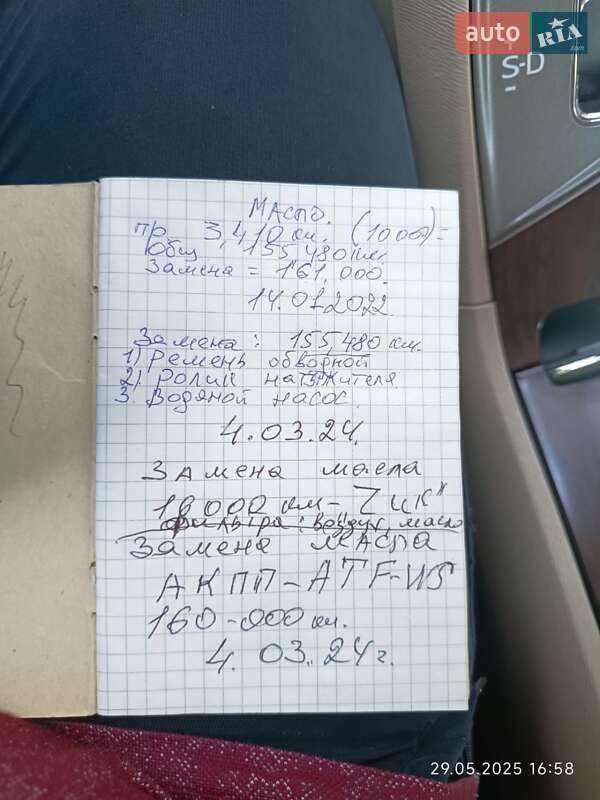 auto RIA.com
S-D
Масло.
пр. 3,410 км. (1000)=
Общ 155,480 км.
Замена = 161,000.
14.01.2022.
Замена: 155,480 км.
1) Ремень обводной
2) Ролик натяжителя
3. Водяной насос.
4.03.24.
Замена масла
000 км - Zик"
фильтра: воздух, масло
Замена масла
АКПП-ATF-WS
160-000 км.
4. 03. 24 г.
29.05.2025 16:58